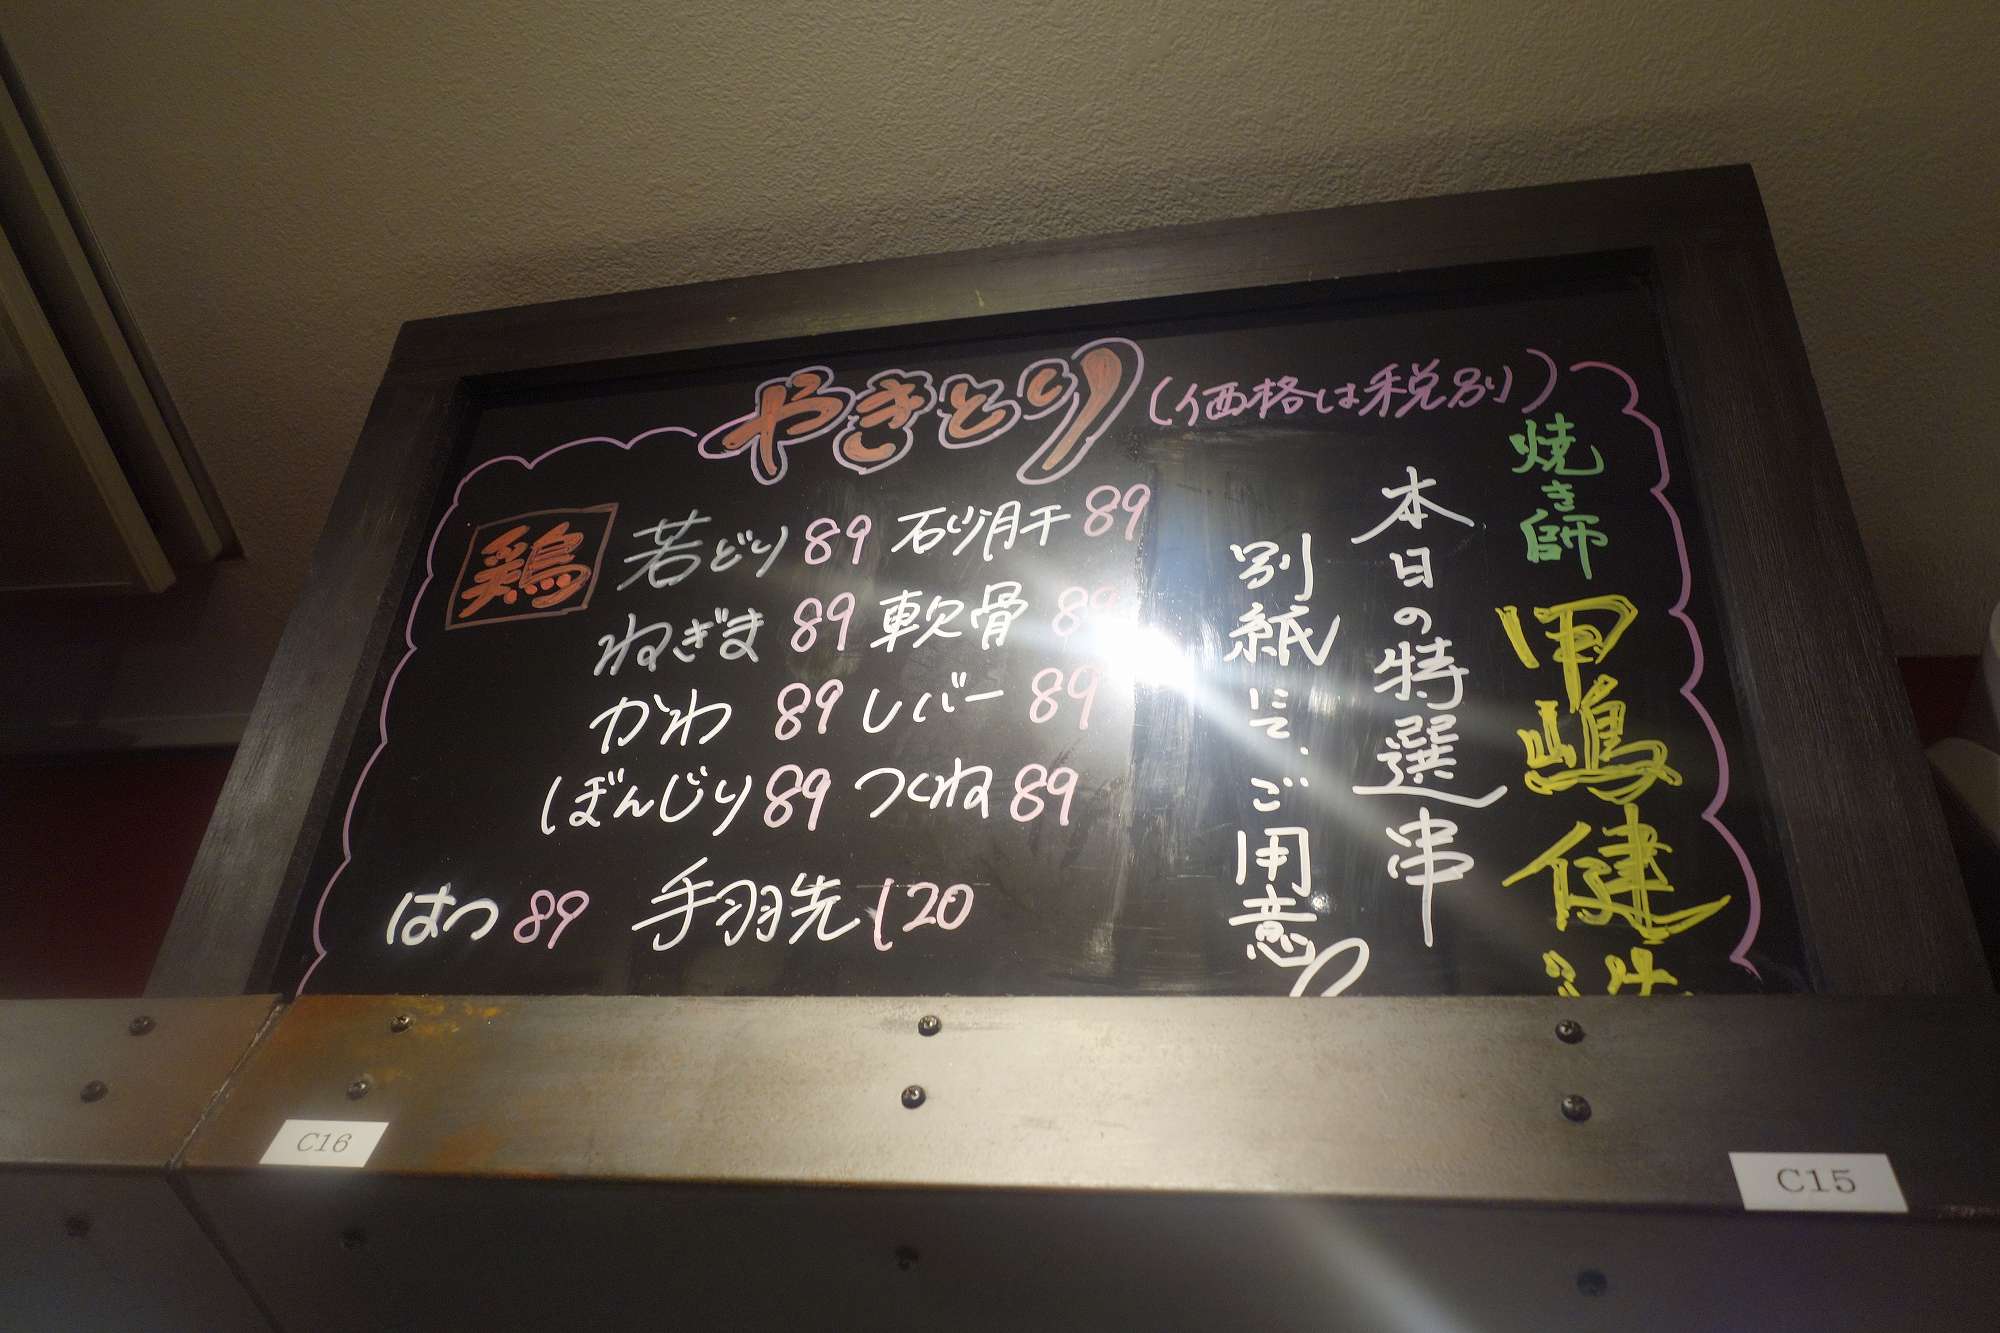 やきとり (価格は税別)
鶏
若どり 89 砂肝 89
ねぎま 89 軟骨 89
かわ 89 レバー 89
ぼんじり 89 つくね 89
はつ 89 手羽先 120
焼き師
甲嶋健
本日の特選串
別紙にて、ご用意
C16
C15